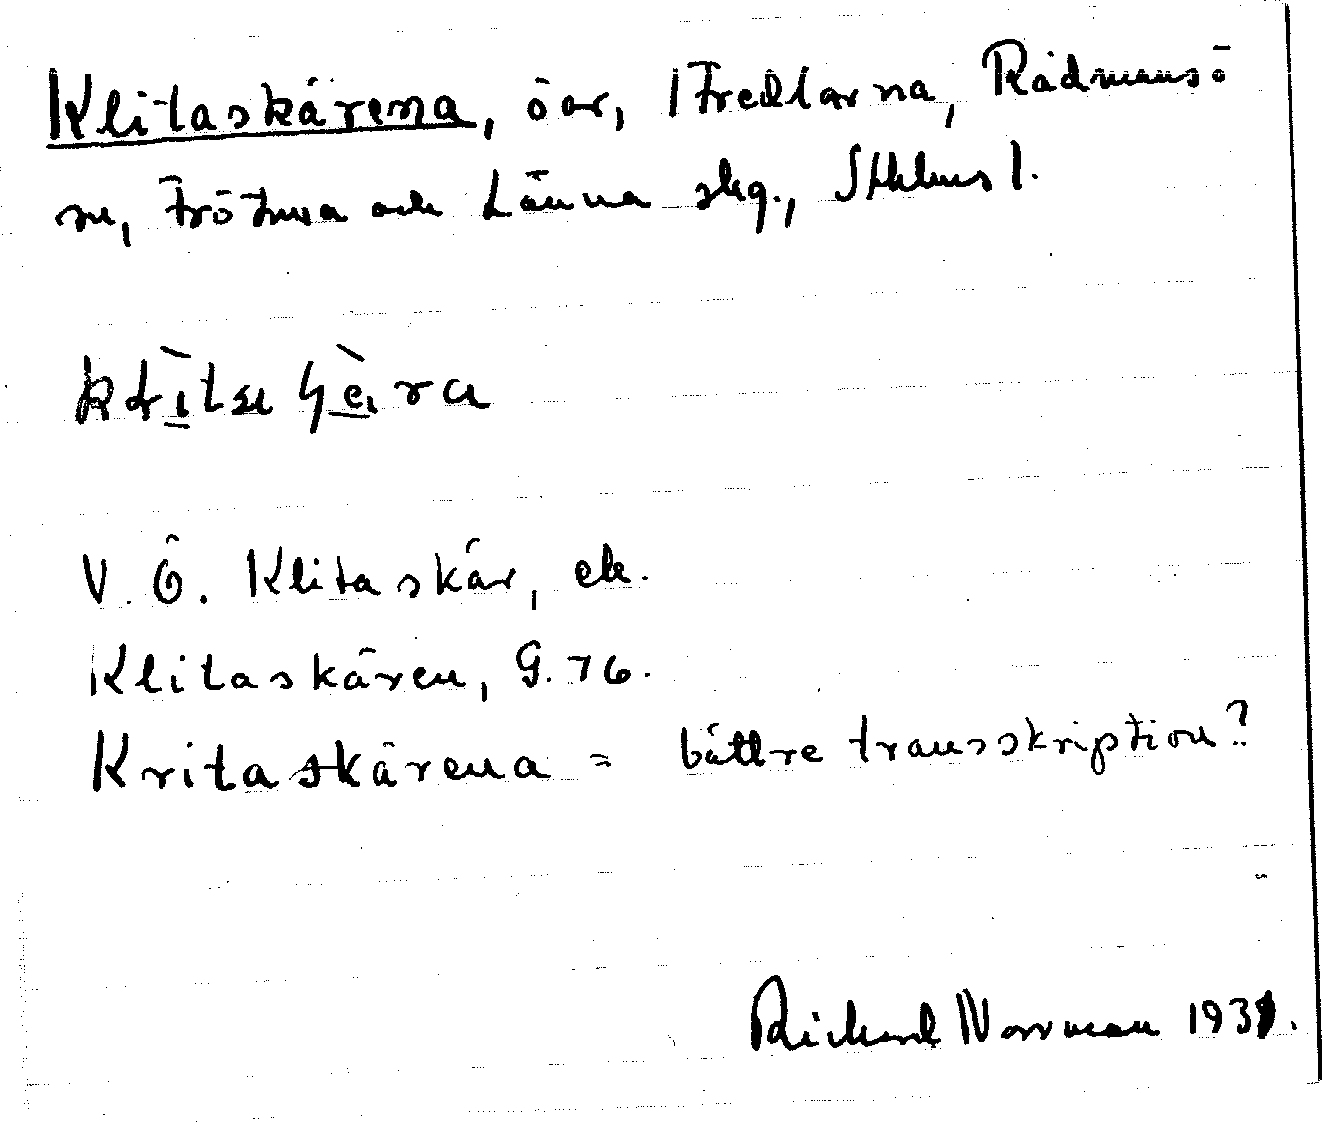 Klitaskärena, öar, i Fredlarna, Rådmansö
sn, Frötuna och Länna skg., Sthlms l.
V. Ö. Klitaskär, ek.
Klitaskären, G. 76.
Kritaskärena = bättre transskription?
Rickard Norrman 1931.